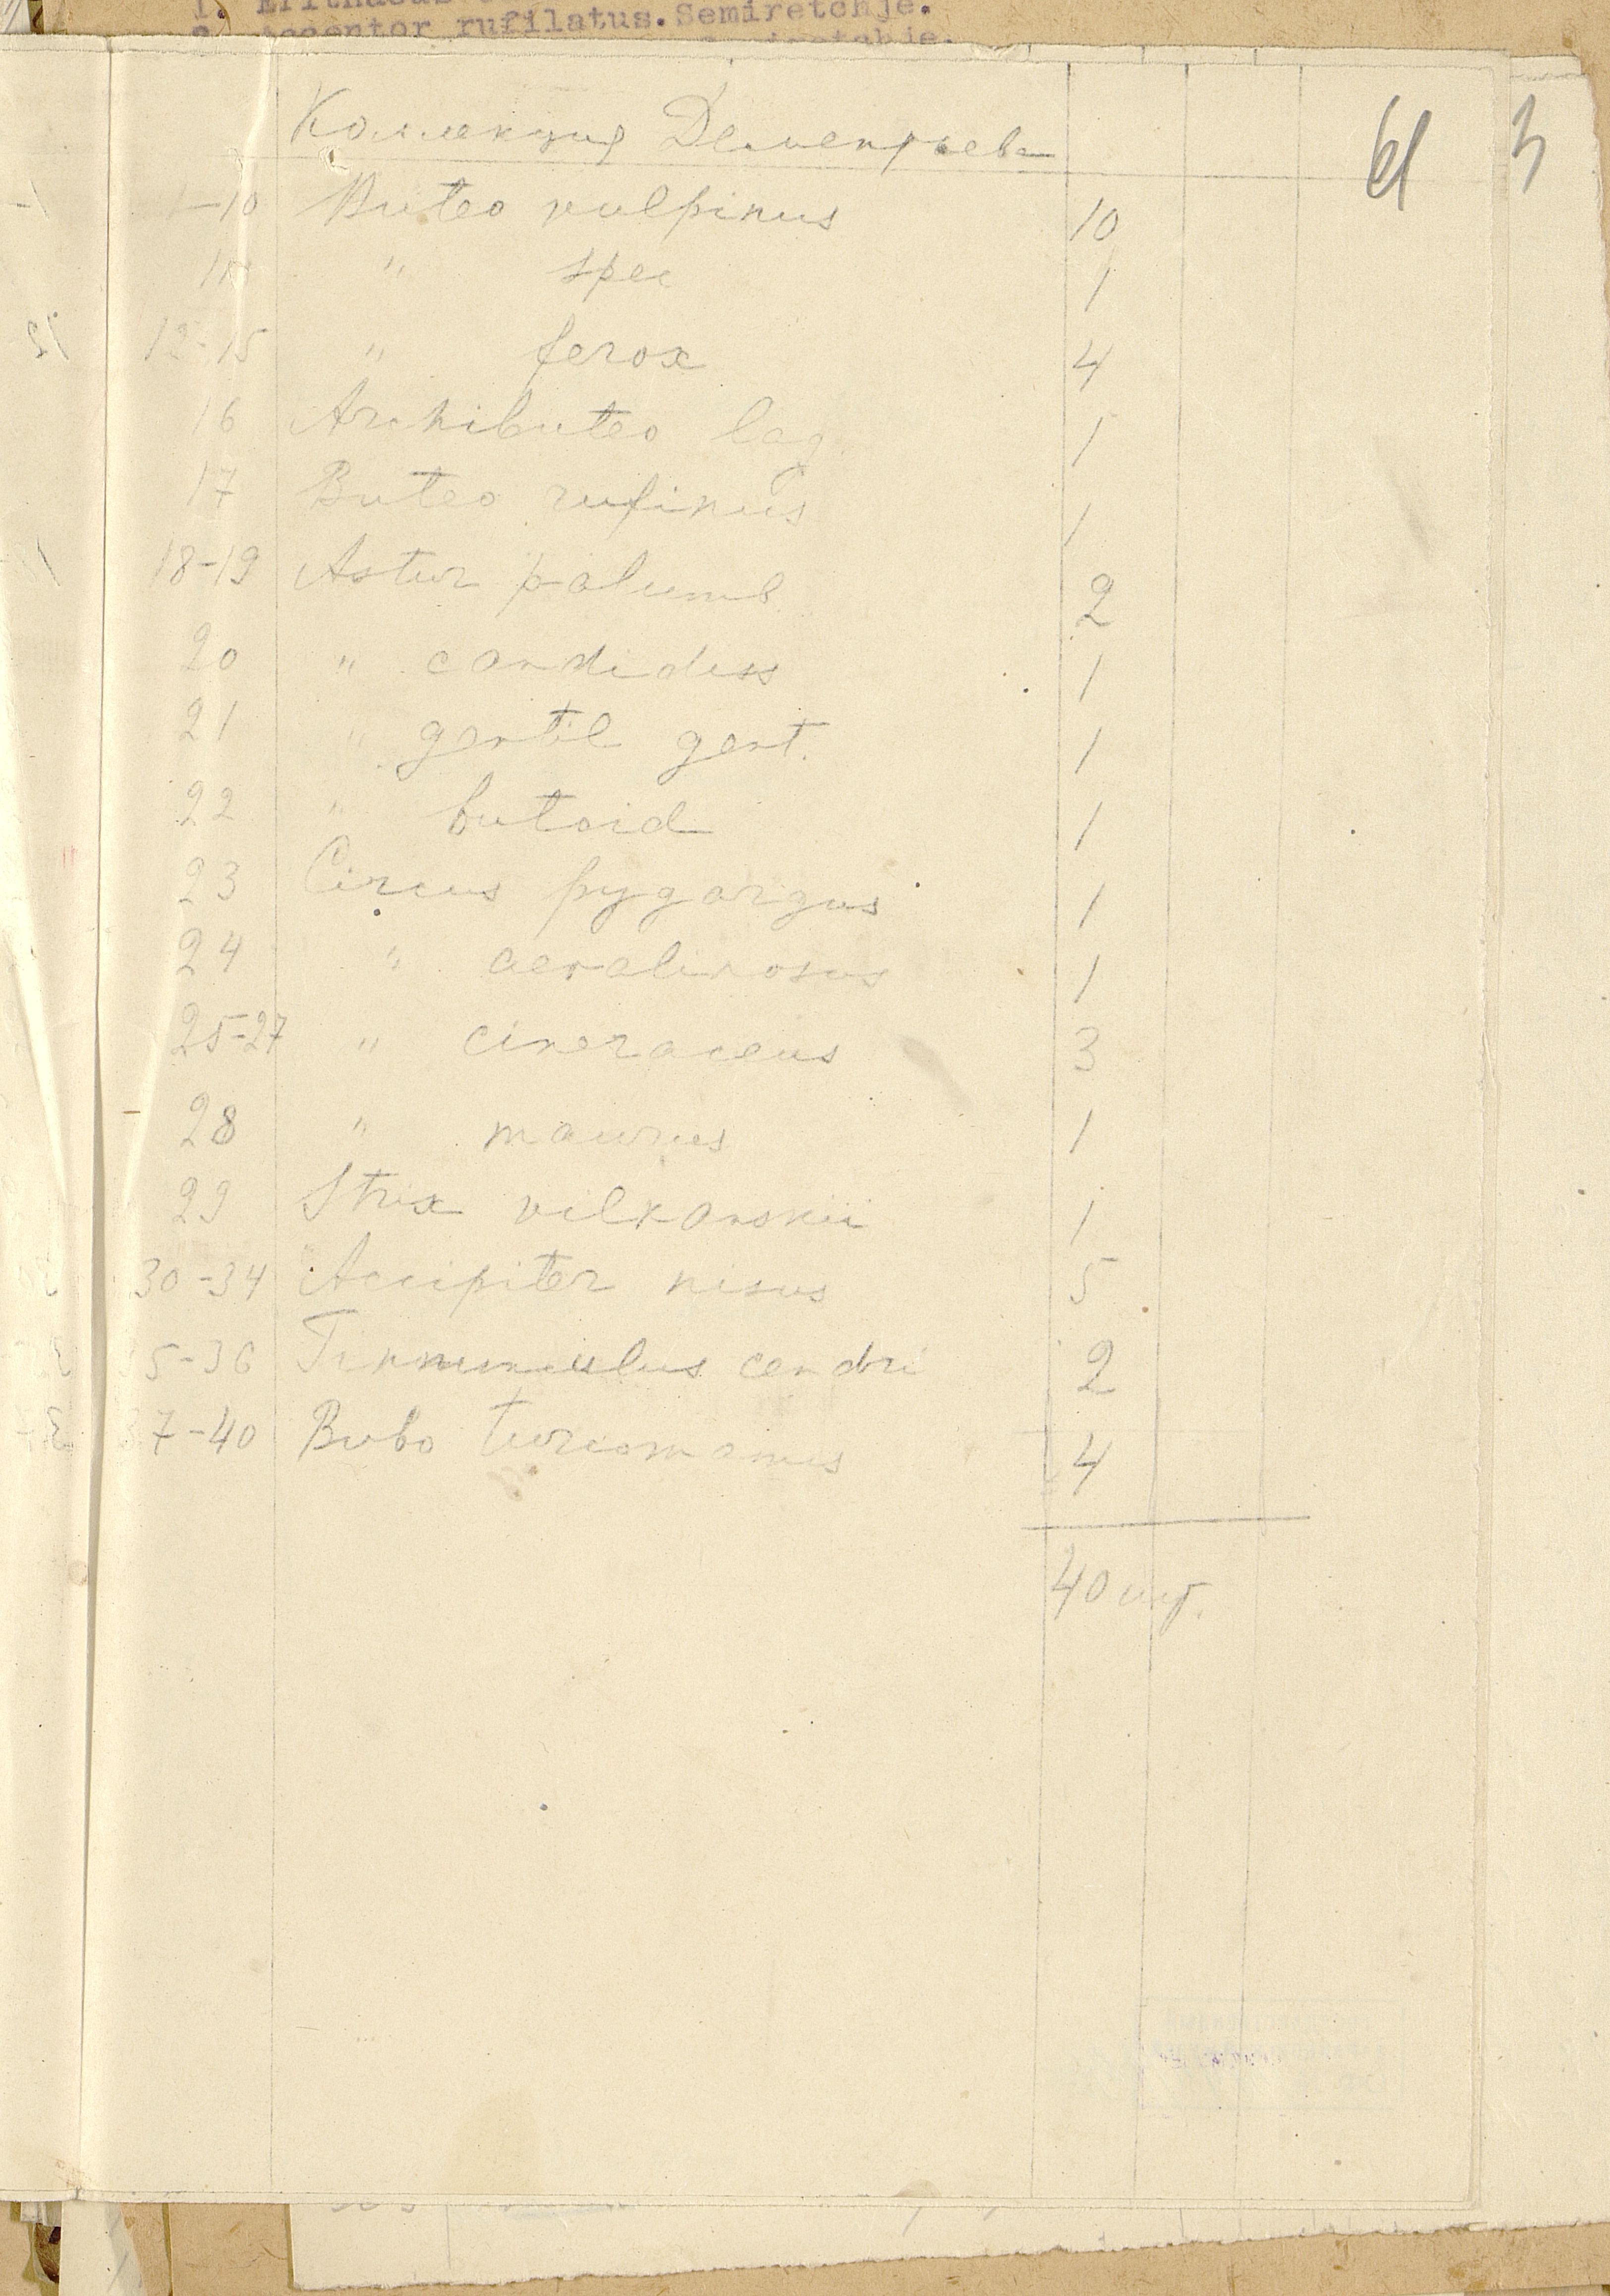 accentor rufilatus. Semiretchje.
Коллекция Дементьева
61
1-10 Buteo vulpinus 10
11 " spec 1
12-15 " ferox 4
16 Archibuteo lag. 1
17 Buteo rufinus 1
18-19 Astur palumb. 2
20 " candidiss 1
21 " gentil gent. 1
22 " butoid 1
23 Circus pygargus 1
24 " aeralinosus 1
25-27 " cineraceus 3
28 " maurus 1
29 Strix vilkonskii 1
30-34 Accipiter nisus 5
5-36 Tinnunculus cenchri 2
37-40 Bubo turcomanus 4
40 шт.